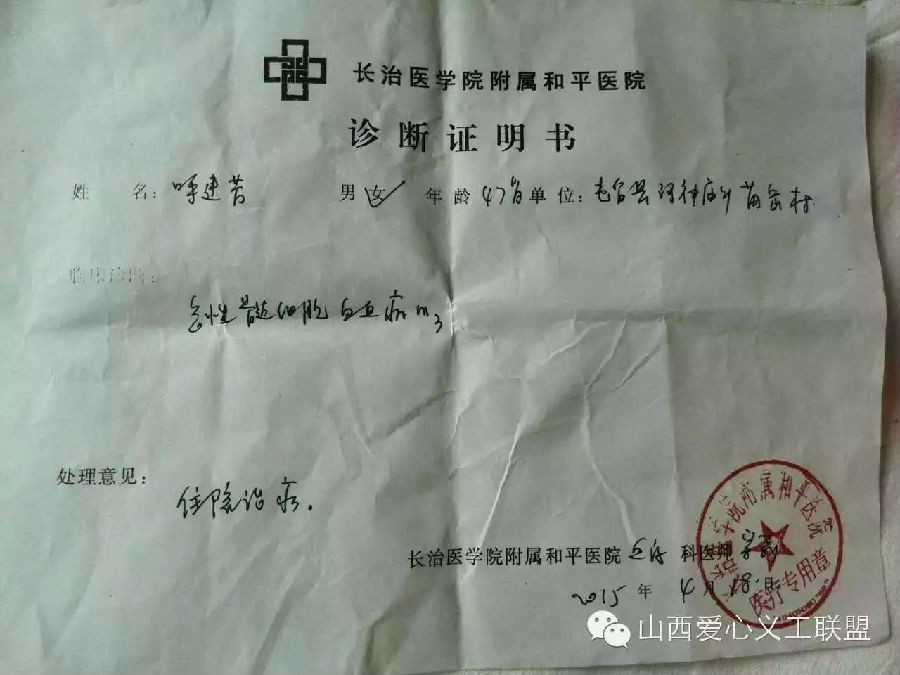 长治医学院附属和平医院
诊断证明书
姓 名：呼建芳 男 女 年龄 47岁 单位：屯留县 村
临床诊断：
急性髓细胞白血病 m3
处理意见：
住院治疗.
长治医学院附属和平医院 血液 科医师
2015 年 4 月 18 日
学院附属和平医院
医疗专用章
山西爱心义工联盟